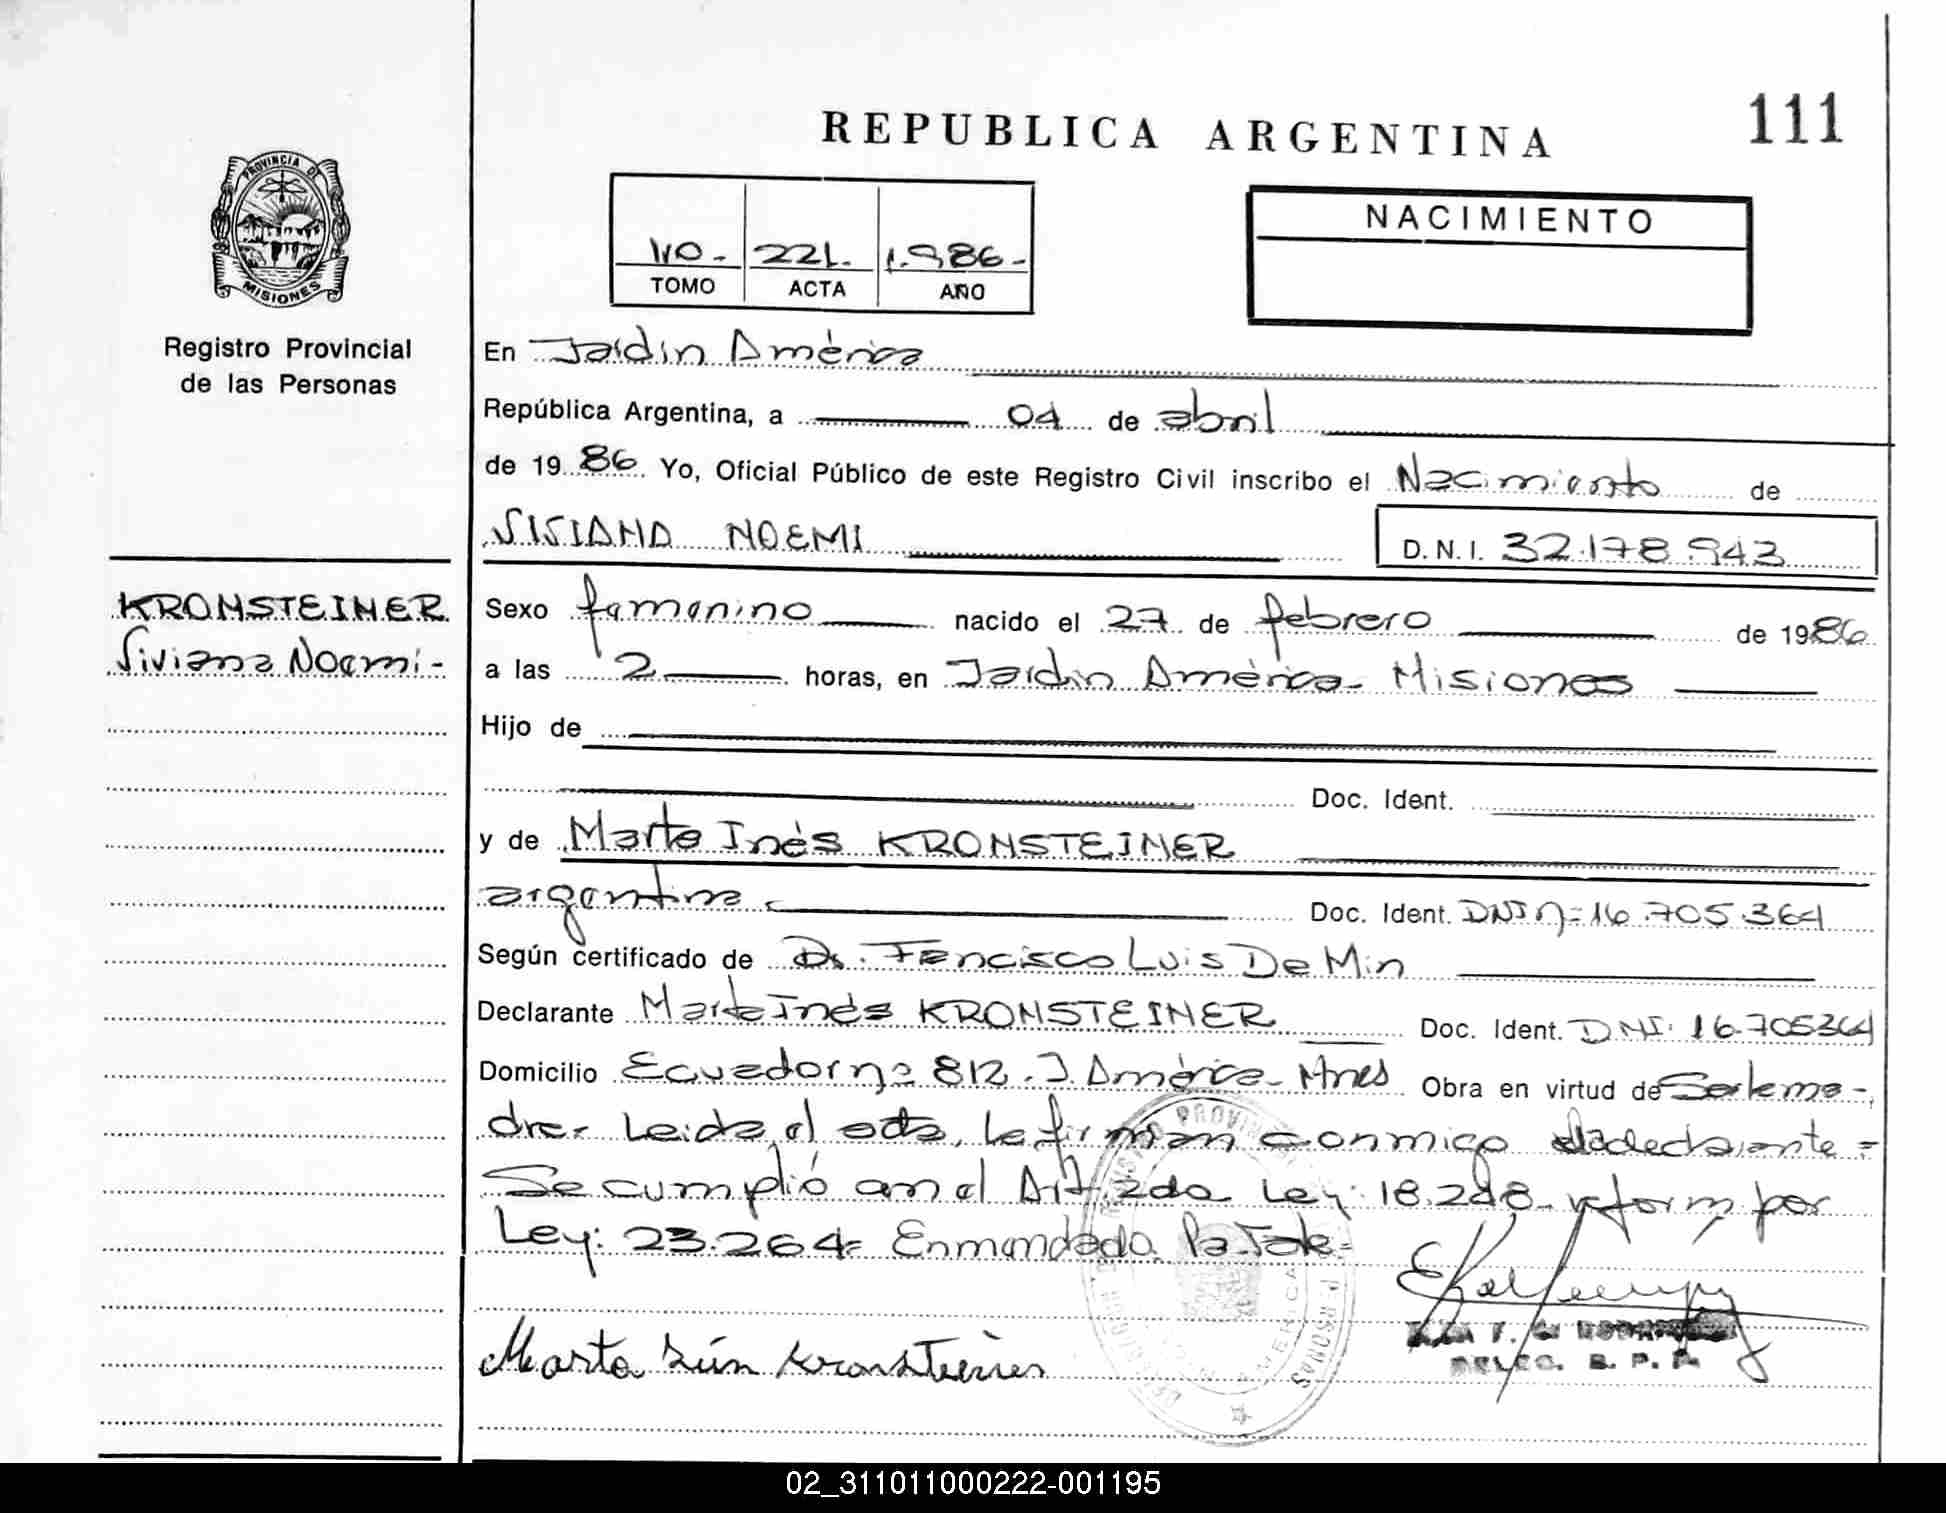 REPUBLICA ARGENTINA
111
PROVINCIA DE
MISIONES
Registro Provincial
de las Personas
221. 1.986-
TOMO ACTA AÑO
NACIMIENTO
En Jardín América
República Argentina, a 04 de abril
de 1986 Yo, Oficial Público de este Registro Civil inscribo el Nacimiento de
VIVIANA NOEMI D.N.I. 32.178.943
KRONSTEINER
Viviana Noemi-
Sexo femenino nacido el 27 de febrero de 1986
a las 2 horas, en Jardín América- Misiones
Hijo de
Doc. Ident.
y de Marta Inés KRONSTEINER
argentina Doc. Ident. DNI nº 16.705.364
Según certificado de Dr. Francisco Luis De Min
Declarante Marta Inés KRONSTEINER Doc. Ident. DNI. 16.705364
Domicilio Ecuador nº 812. J. América- Mnes Obra en virtud de Ser la ma-
dre- Leída el acta, la firman conmigo la declarante=
Se cumplió con el Art. 2do Ley: 18.248- reform por
Ley: 23.264= Enmendado
Marta Inés Kronsteiner
DELEG. R. P. P.
02_311011000222-001195